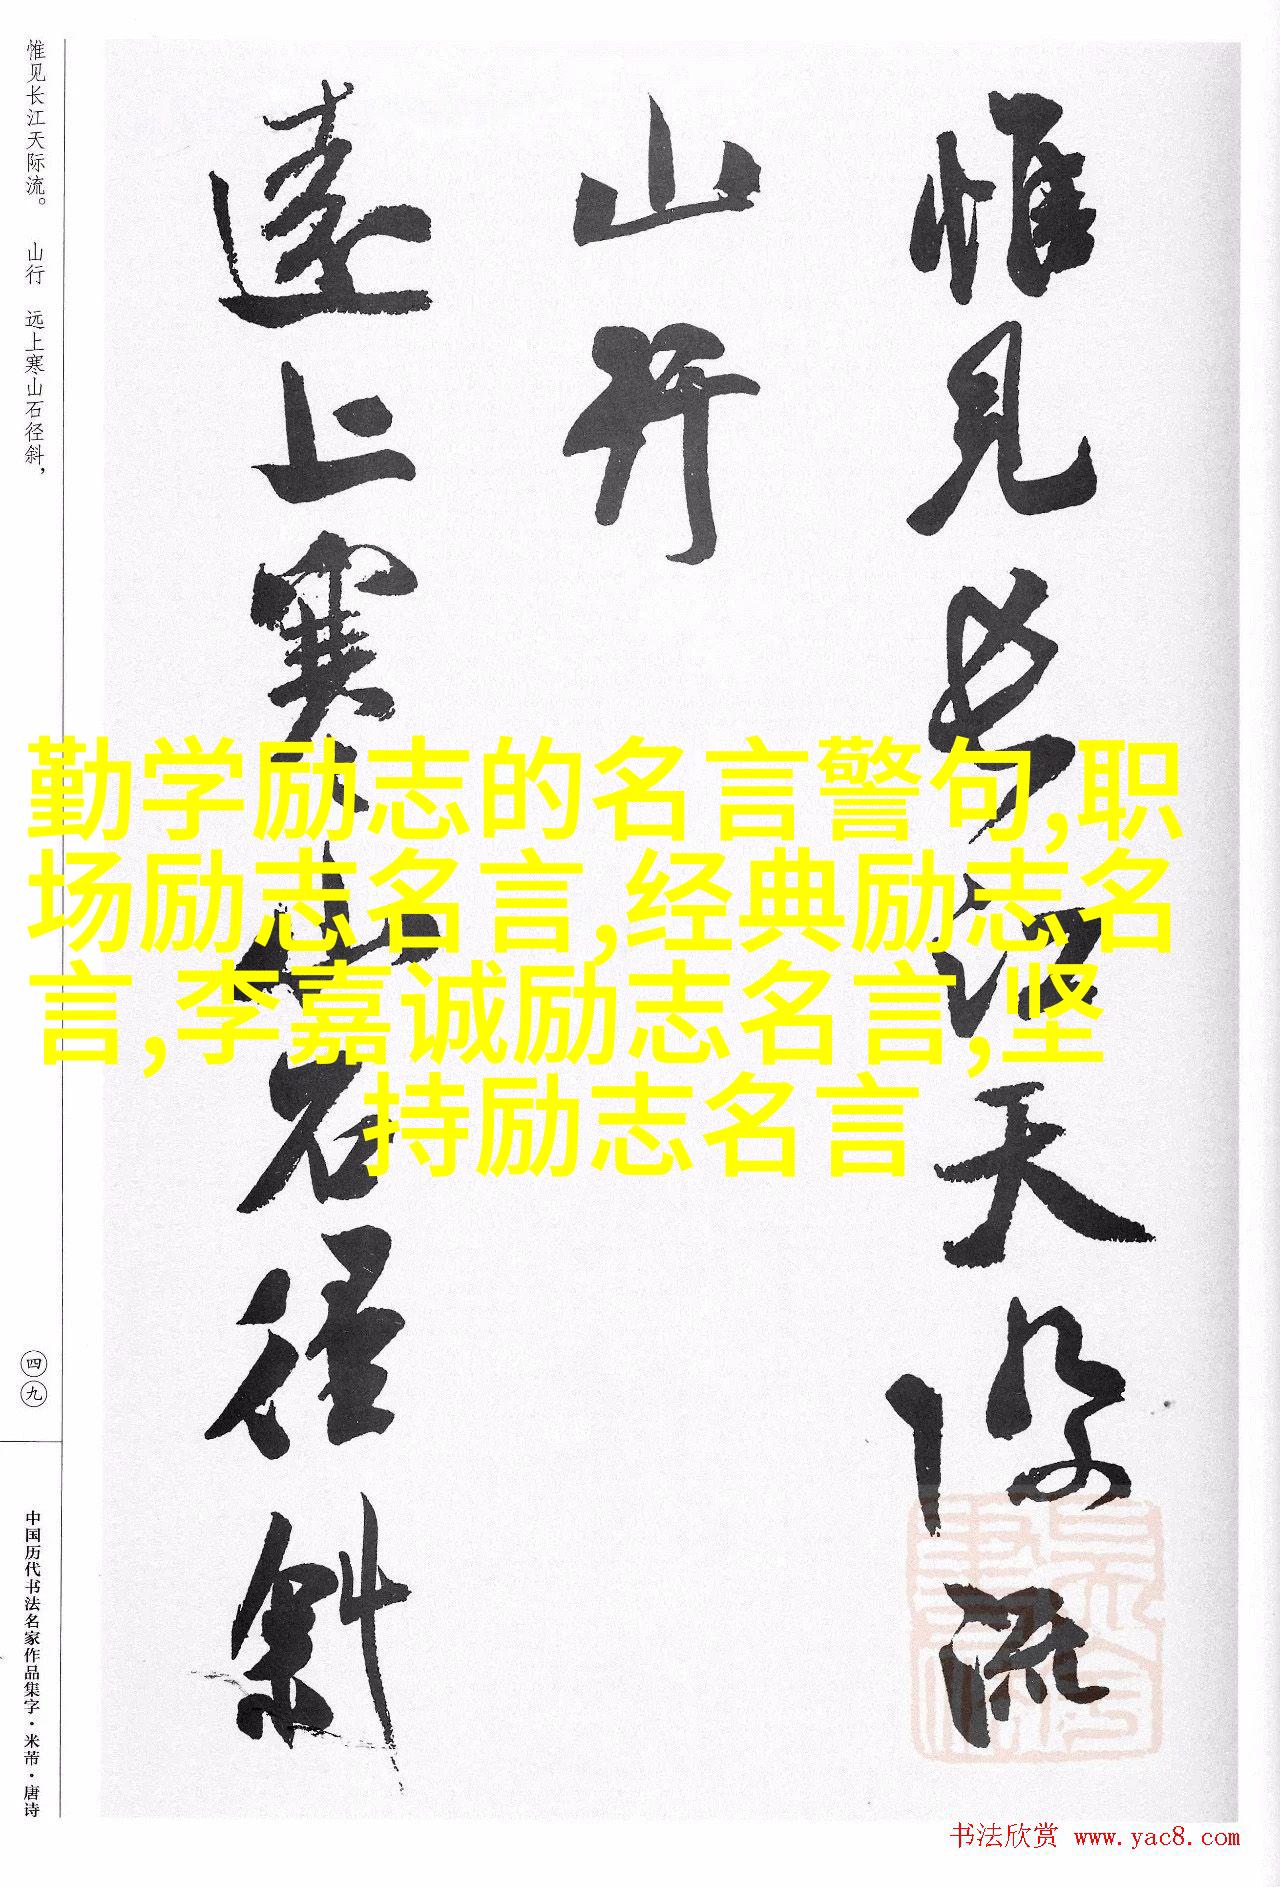 惟见长江天际流。 山行 远上寒山石径斜，
惟見長江天際流
山行
遠上寒山石徑斜
勤学励志的名言警句,职
场励志名言,经典励志名
言,李嘉诚励志名言,坚
持励志名言
四九
中国历代书法名家作品集字·米芾·唐诗
书法欣赏 www.yac8.com